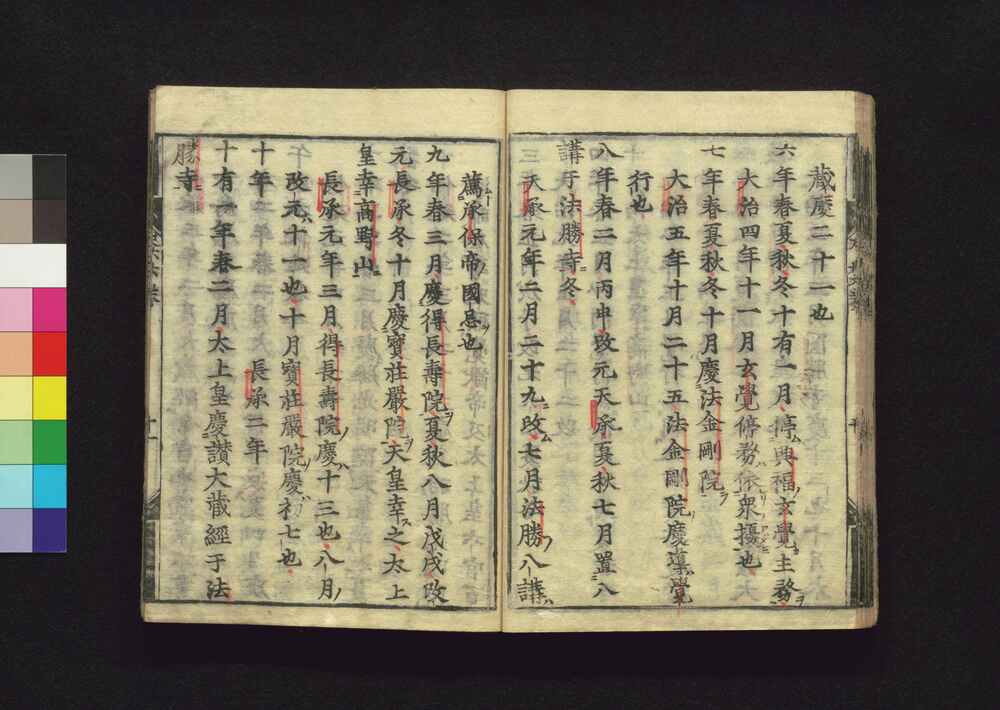 藏慶二十一也
六年春夏秋冬十有一月停興福玄覺主務
大治四年十一月玄覺停務依衆擾也
七年春夏秋冬十月慶法金剛院
大治五年十月二十五法金剛院慶導覺
行也
八年春二月丙申改元天承夏秋七月置八
講于法勝寺冬
天承元年二月二十九改七月法勝八講
薦承保帝國忌也
九年春三月慶得長壽院夏秋八月戊戌改
元長承冬十月慶寶莊嚴院天皇幸之太上
皇幸高野山
長承元年三月得長壽院慶十三也八月
改元十一也十月寶莊嚴院慶初七也
十年 長承二年
十有一年春二月太上皇慶讃大藏經于法
勝寺